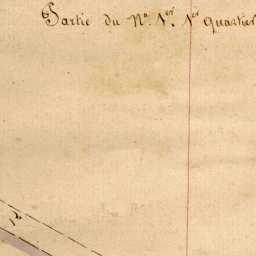 Partie du N.º 1.er 1.er Quartier
12